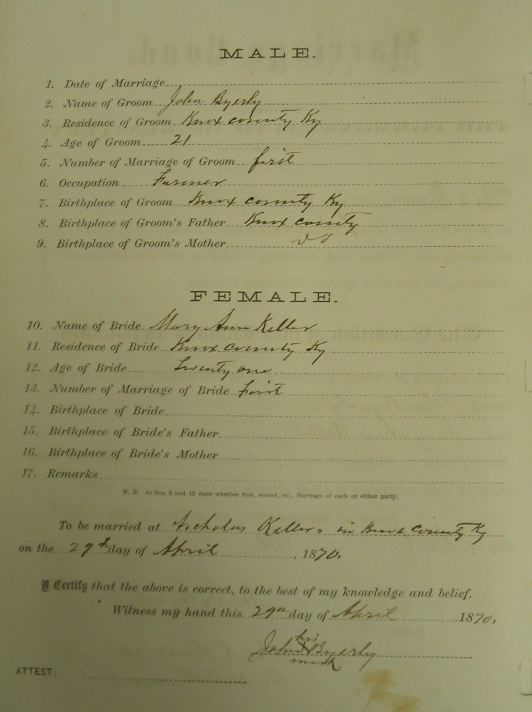 MALE.
1. Date of Marriage
2. Name of Groom John Byerly
3. Residence of Groom Knox county Ky
4. Age of Groom 21
5. Number of Marriage of Groom first
6. Occupation Farmer
7. Birthplace of Groom Knox county Ky
8. Birthplace of Groom's Father Knox county
9. Birthplace of Groom's Mother
FEMALE.
10. Name of Bride Mary Ann Keller
11. Residence of Bride Knox county Ky
12. Age of Bride Twenty one
13. Number of Marriage of Bride first
14. Birthplace of Bride
15. Birthplace of Bride's Father
16. Birthplace of Bride's Mother
17. Remarks
N. B. At Nos. 5 and 13 state whether first, second, etc., Marriage of each or either party.
To be married at Nicholas Kellers in Knox County Ky
on the 29th day of April, 1870.
I Certify that the above is correct, to the best of my knowledge and belief.
Witness my hand this 29th day of April 1870.
his
John X Byerly
mark
ATTEST: